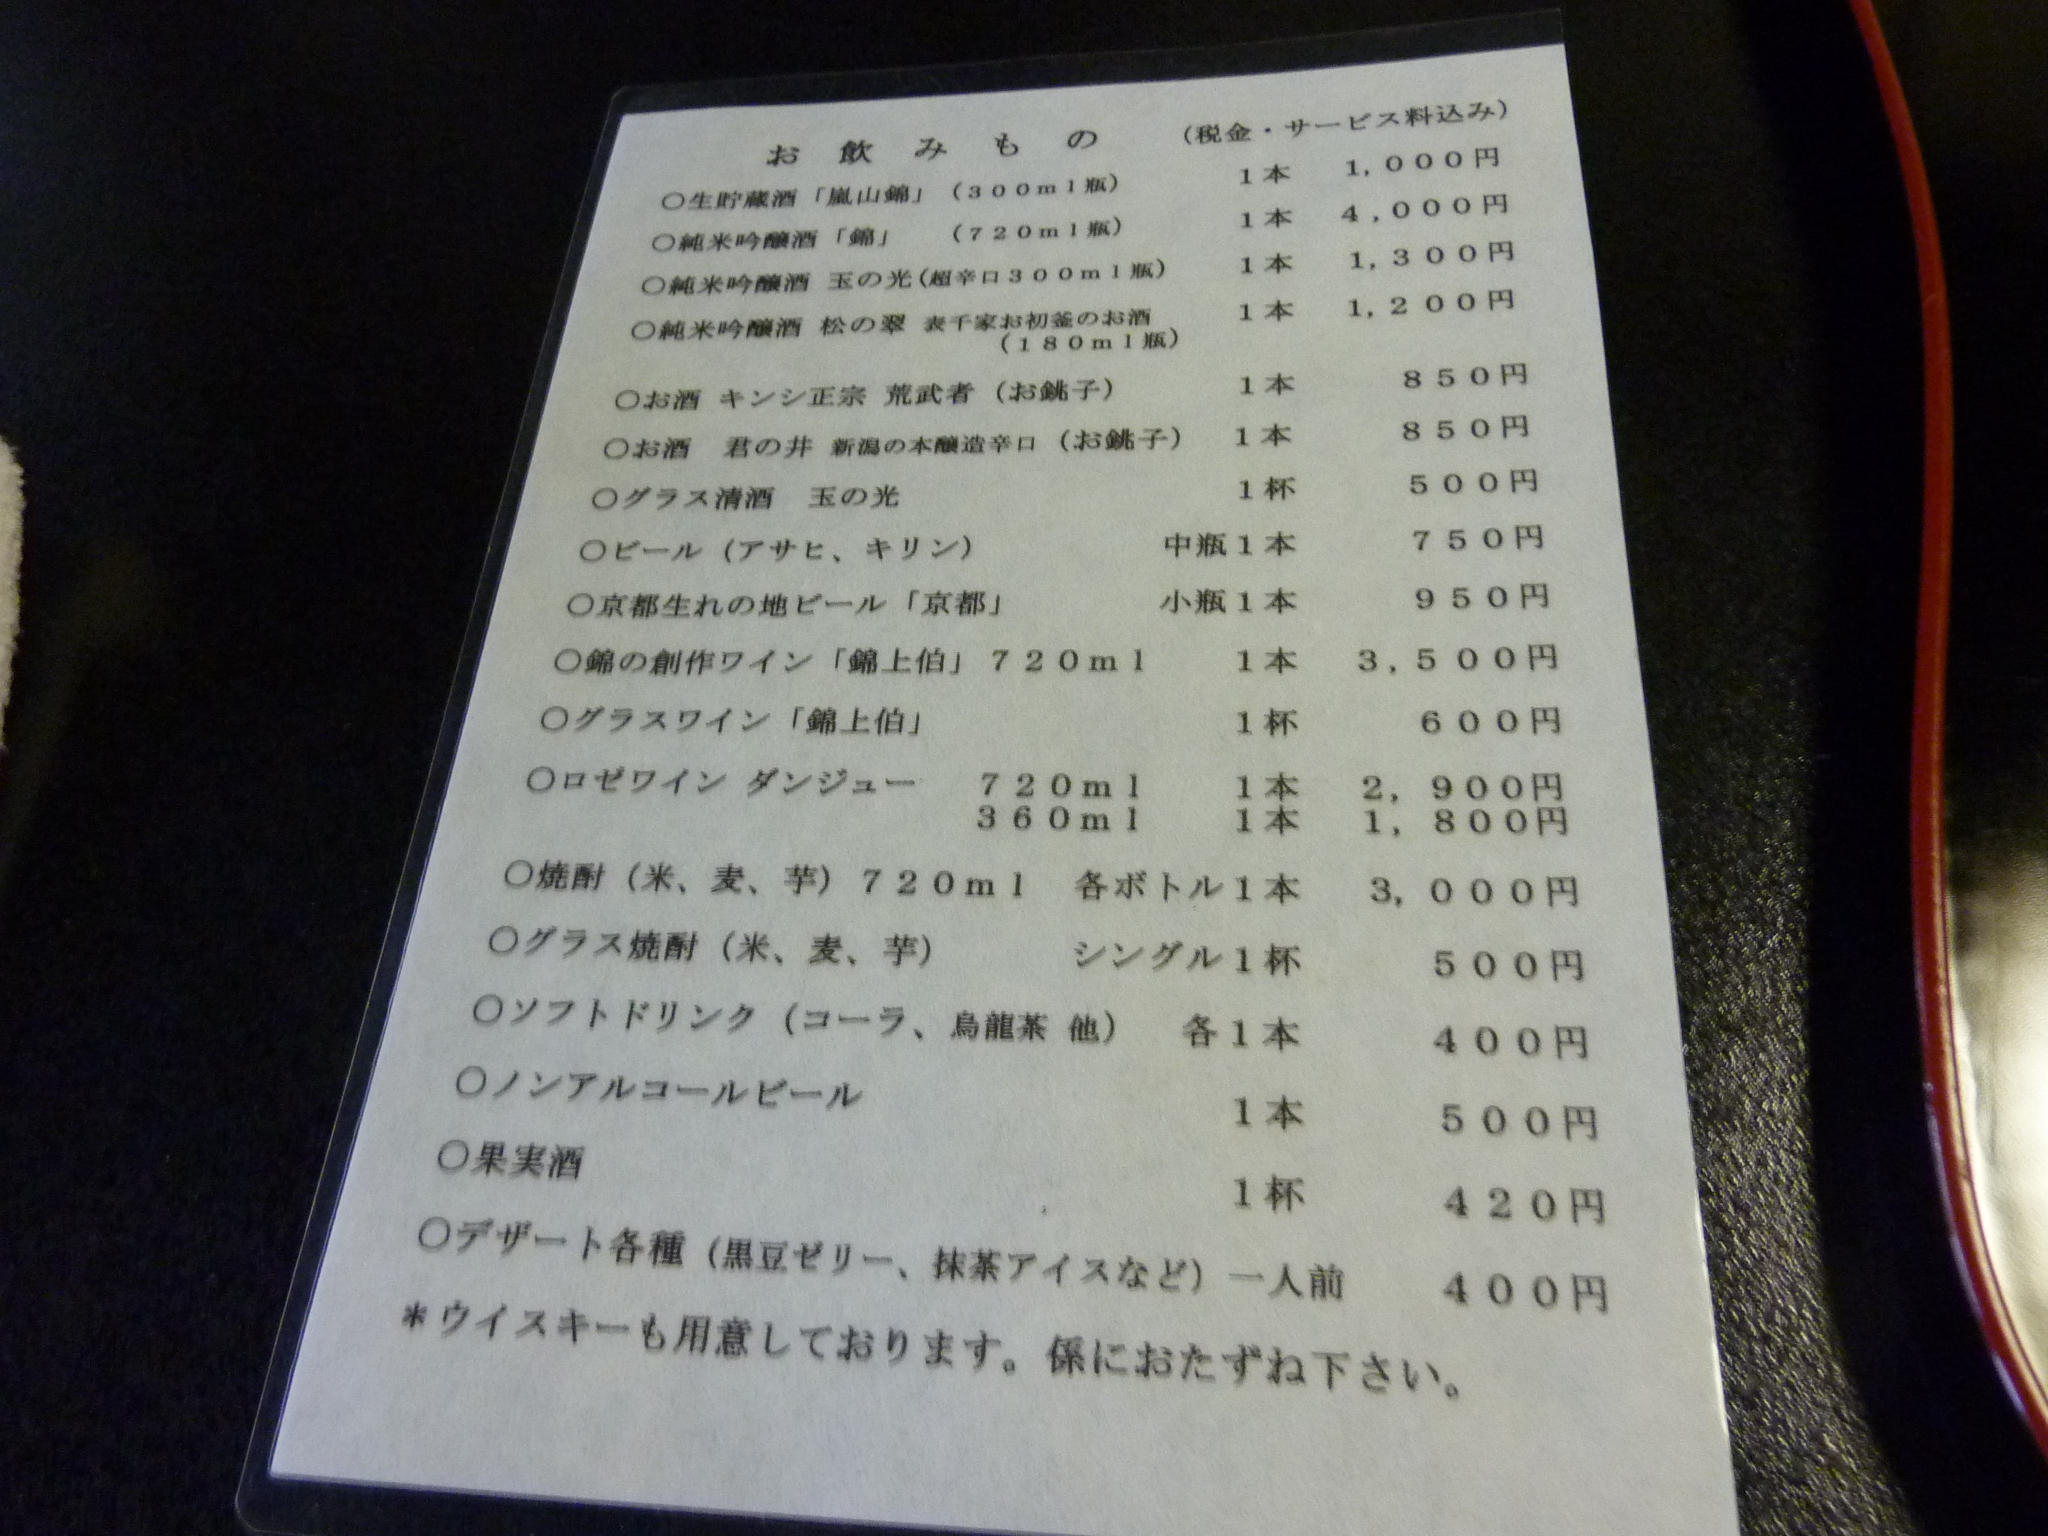 お飲みもの （税金・サービス料込み）
○生貯蔵酒「嵐山錦」（３００ｍｌ瓶） １本 １，０００円
○純米吟醸酒「錦」 （７２０ｍｌ瓶） １本 ４，０００円
○純米吟醸酒 玉の光（超辛口３００ｍｌ瓶） １本 １，３００円
○純米吟醸酒 松の翠 表千家お初釜のお酒 １本 １，２００円
（１８０ｍｌ瓶）
○お酒 キンシ正宗 荒武者（お銚子） １本 ８５０円
○お酒 君の井 新潟の本醸造辛口（お銚子） １本 ８５０円
○グラス清酒 玉の光 １杯 ５００円
○ビール（アサヒ、キリン） 中瓶１本 ７５０円
○京都生れの地ビール「京都」 小瓶１本 ９５０円
○錦の創作ワイン「錦上伯」７２０ｍｌ １本 ３，５００円
○グラスワイン「錦上伯」 １杯 ６００円
○ロゼワイン ダンジュー ７２０ｍｌ １本 ２，９００円
３６０ｍｌ １本 １，８００円
○焼酎（米、麦、芋）７２０ｍｌ 各ボトル１本 ３，０００円
○グラス焼酎（米、麦、芋） シングル１杯 ５００円
○ソフトドリンク（コーラ、烏龍茶 他） 各１本 ４００円
○ノンアルコールビール １本 ５００円
○果実酒 １杯 ４２０円
○デザート各種（黒豆ゼリー、抹茶アイスなど）一人前 ４００円
＊ウイスキーも用意しております。係におたずね下さい。